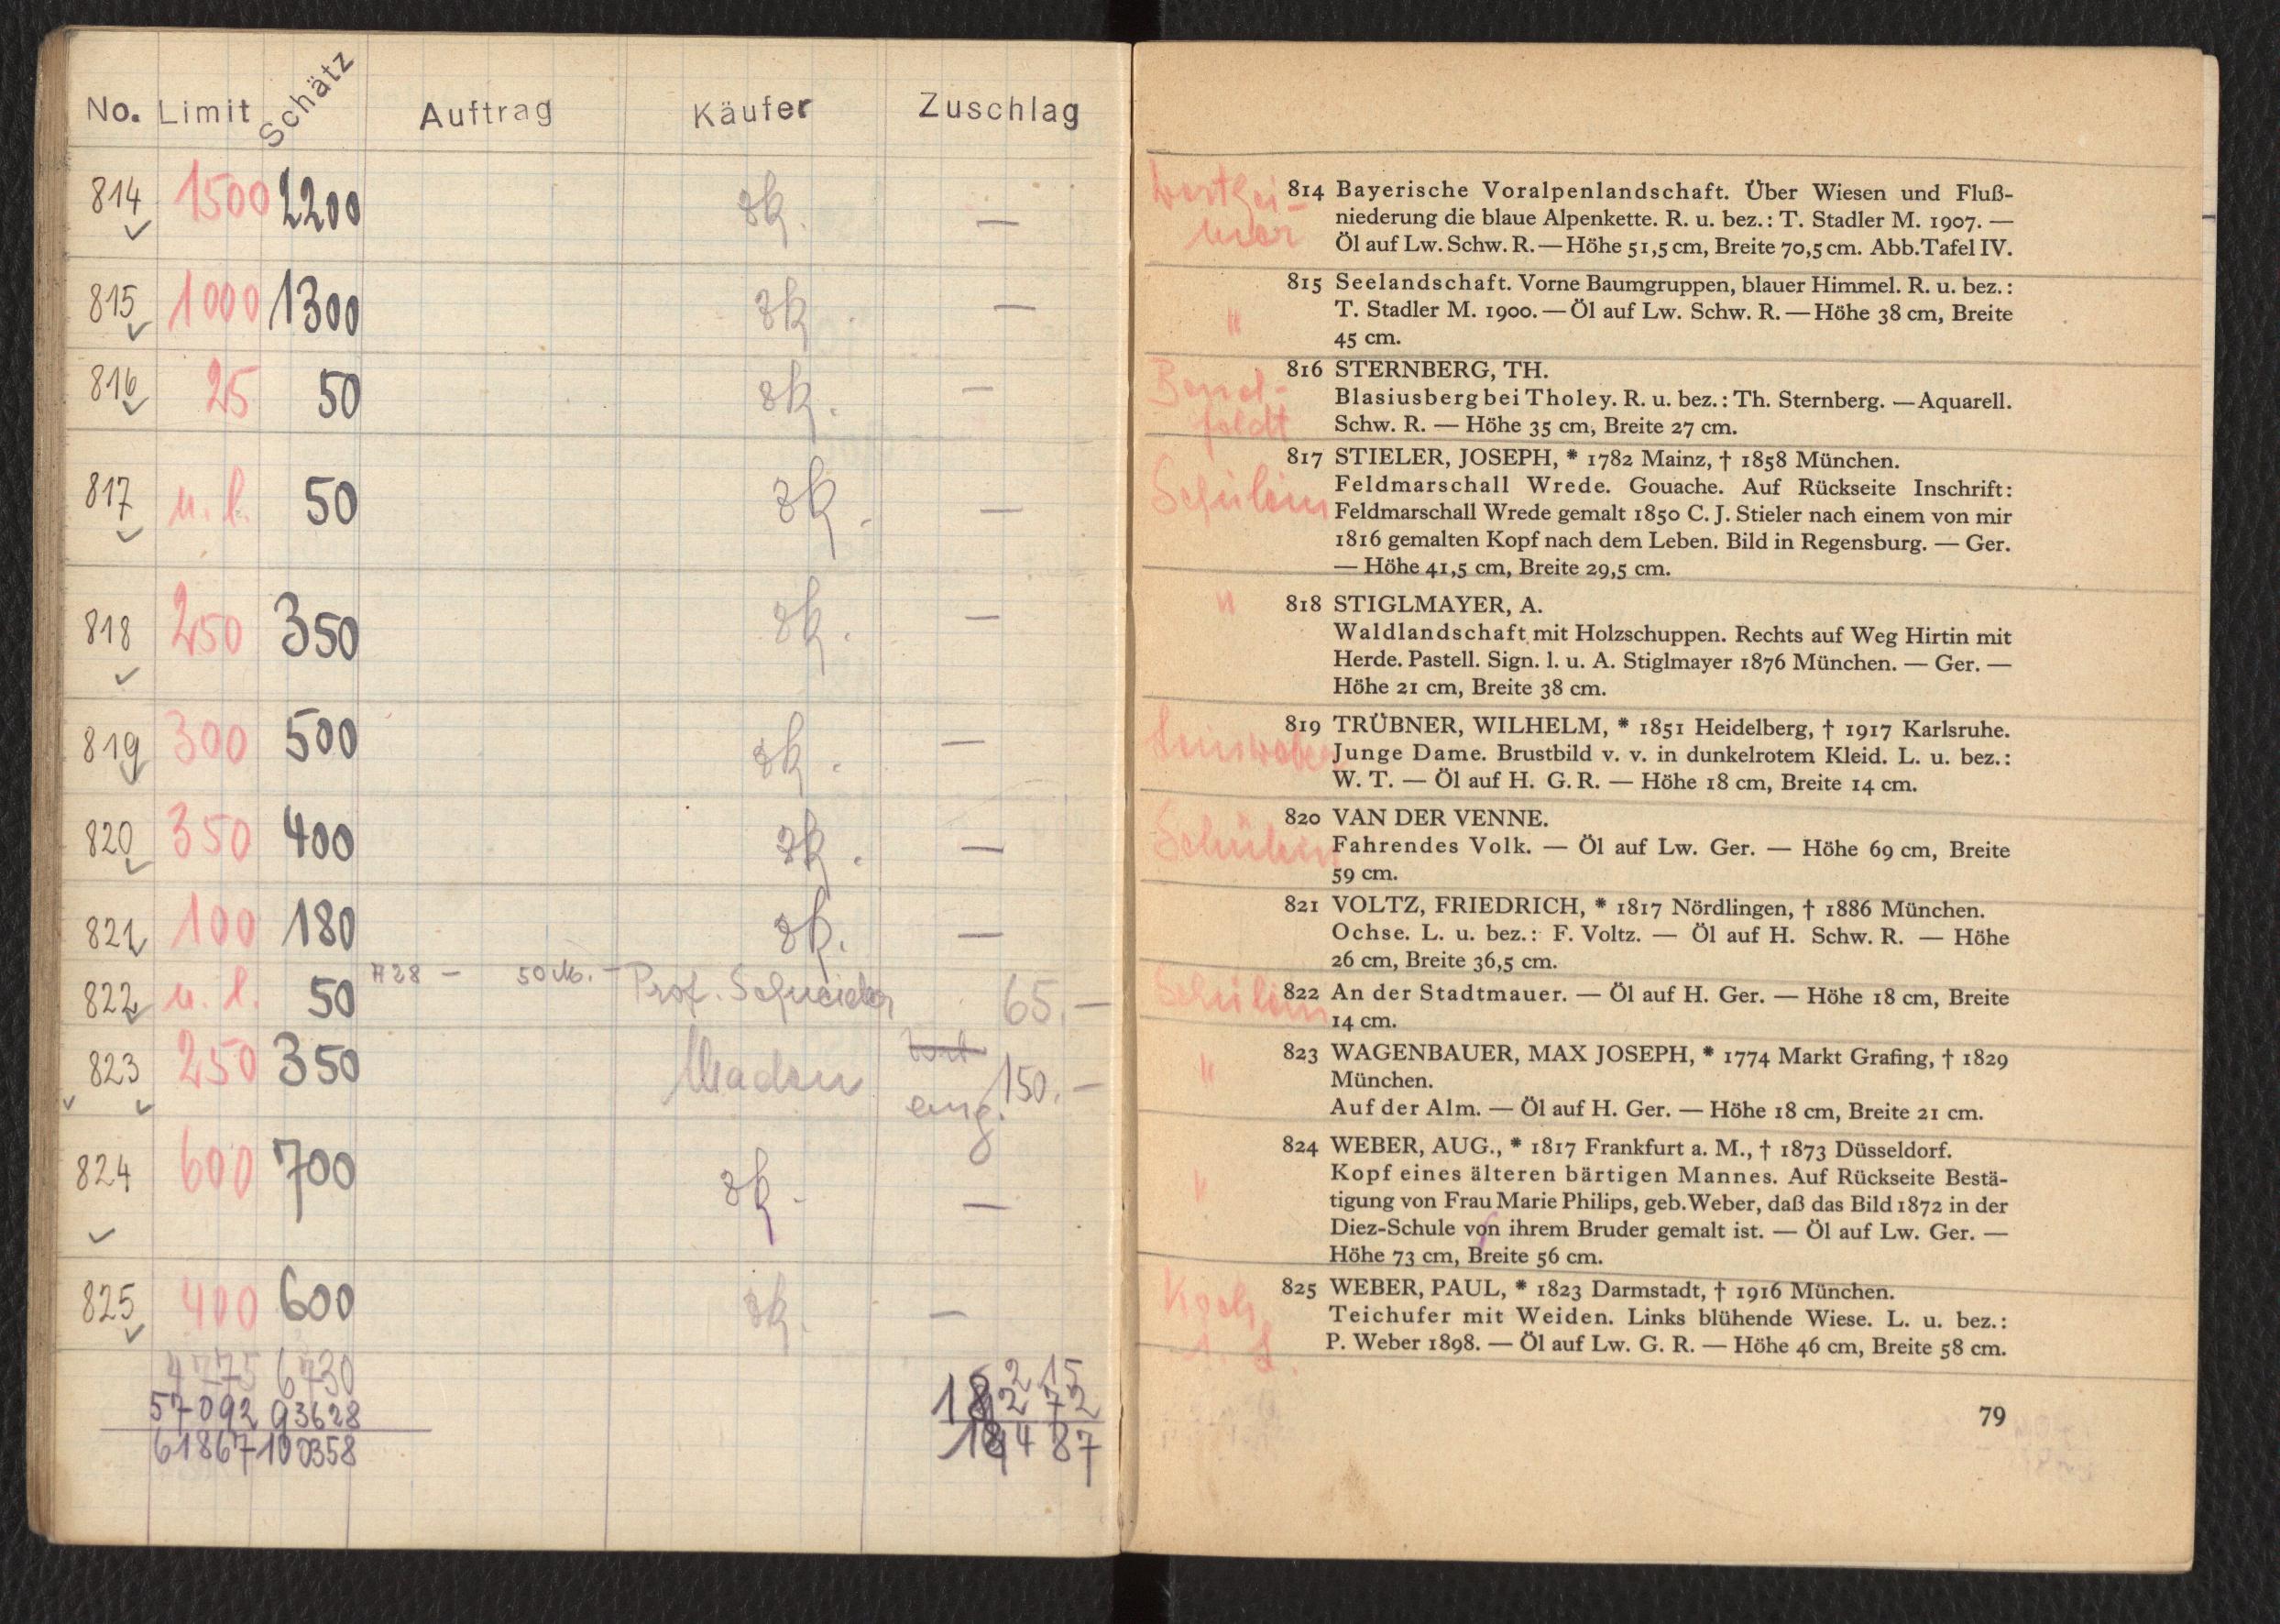 No. Limit Schätz Auftrag Käufer Zuschlag
814 1500 2200 zk. —
815 1000 1300 zk. —
816 25 50 zk. —
817 u. l. 50 zk. —
818 250 350 zk. —
819 300 500 zk. —
820 350 400 zk. —
821 100 180 zk. —
822 u. l. 50 A 28 — 50 M. — Prof. Schneider 65.—
823 250 350 eing. 150.—
824 600 700 zk. —
825 400 600 zk. —
4775 6730 215
57092 93628 18272
61867 100358 18487
814 Bayerische Voralpenlandschaft. Über Wiesen und Fluß-
niederung die blaue Alpenkette. R. u. bez.: T. Stadler M. 1907. —
Öl auf Lw. Schw. R. — Höhe 51,5 cm, Breite 70,5 cm. Abb. Tafel IV.
815 Seelandschaft. Vorne Baumgruppen, blauer Himmel. R. u. bez.:
" T. Stadler M. 1900. — Öl auf Lw. Schw. R. — Höhe 38 cm, Breite
45 cm.
816 STERNBERG, TH.
Blasiusberg bei Tholey. R. u. bez.: Th. Sternberg. — Aquarell.
Schw. R. — Höhe 35 cm, Breite 27 cm.
817 STIELER, JOSEPH, * 1782 Mainz, † 1858 München.
Feldmarschall Wrede. Gouache. Auf Rückseite Inschrift:
Schülein Feldmarschall Wrede gemalt 1850 C. J. Stieler nach einem von mir
1816 gemalten Kopf nach dem Leben. Bild in Regensburg. — Ger.
— Höhe 41,5 cm, Breite 29,5 cm.
" 818 STIGLMAYER, A.
Waldlandschaft mit Holzschuppen. Rechts auf Weg Hirtin mit
Herde. Pastell. Sign. l. u. A. Stiglmayer 1876 München. — Ger. —
Höhe 21 cm, Breite 38 cm.
819 TRÜBNER, WILHELM, * 1851 Heidelberg, † 1917 Karlsruhe.
Junge Dame. Brustbild v. v. in dunkelrotem Kleid. L. u. bez.:
W. T. — Öl auf H. G. R. — Höhe 18 cm, Breite 14 cm.
820 VAN DER VENNE.
Schülein Fahrendes Volk. — Öl auf Lw. Ger. — Höhe 69 cm, Breite
59 cm.
821 VOLTZ, FRIEDRICH, * 1817 Nördlingen, † 1886 München.
Ochse. L. u. bez.: F. Voltz. — Öl auf H. Schw. R. — Höhe
26 cm, Breite 36,5 cm.
Schülein 822 An der Stadtmauer. — Öl auf H. Ger. — Höhe 18 cm, Breite
14 cm.
823 WAGENBAUER, MAX JOSEPH, * 1774 Markt Grafing, † 1829
" München.
Auf der Alm. — Öl auf H. Ger. — Höhe 18 cm, Breite 21 cm.
824 WEBER, AUG., * 1817 Frankfurt a. M., † 1873 Düsseldorf.
" Kopf eines älteren bärtigen Mannes. Auf Rückseite Bestä-
tigung von Frau Marie Philips, geb. Weber, daß das Bild 1872 in der
Diez-Schule von ihrem Bruder gemalt ist. — Öl auf Lw. Ger. —
Höhe 73 cm, Breite 56 cm.
Koch 825 WEBER, PAUL, * 1823 Darmstadt, † 1916 München.
Teichufer mit Weiden. Links blühende Wiese. L. u. bez.:
P. Weber 1898. — Öl auf Lw. G. R. — Höhe 46 cm, Breite 58 cm.
79